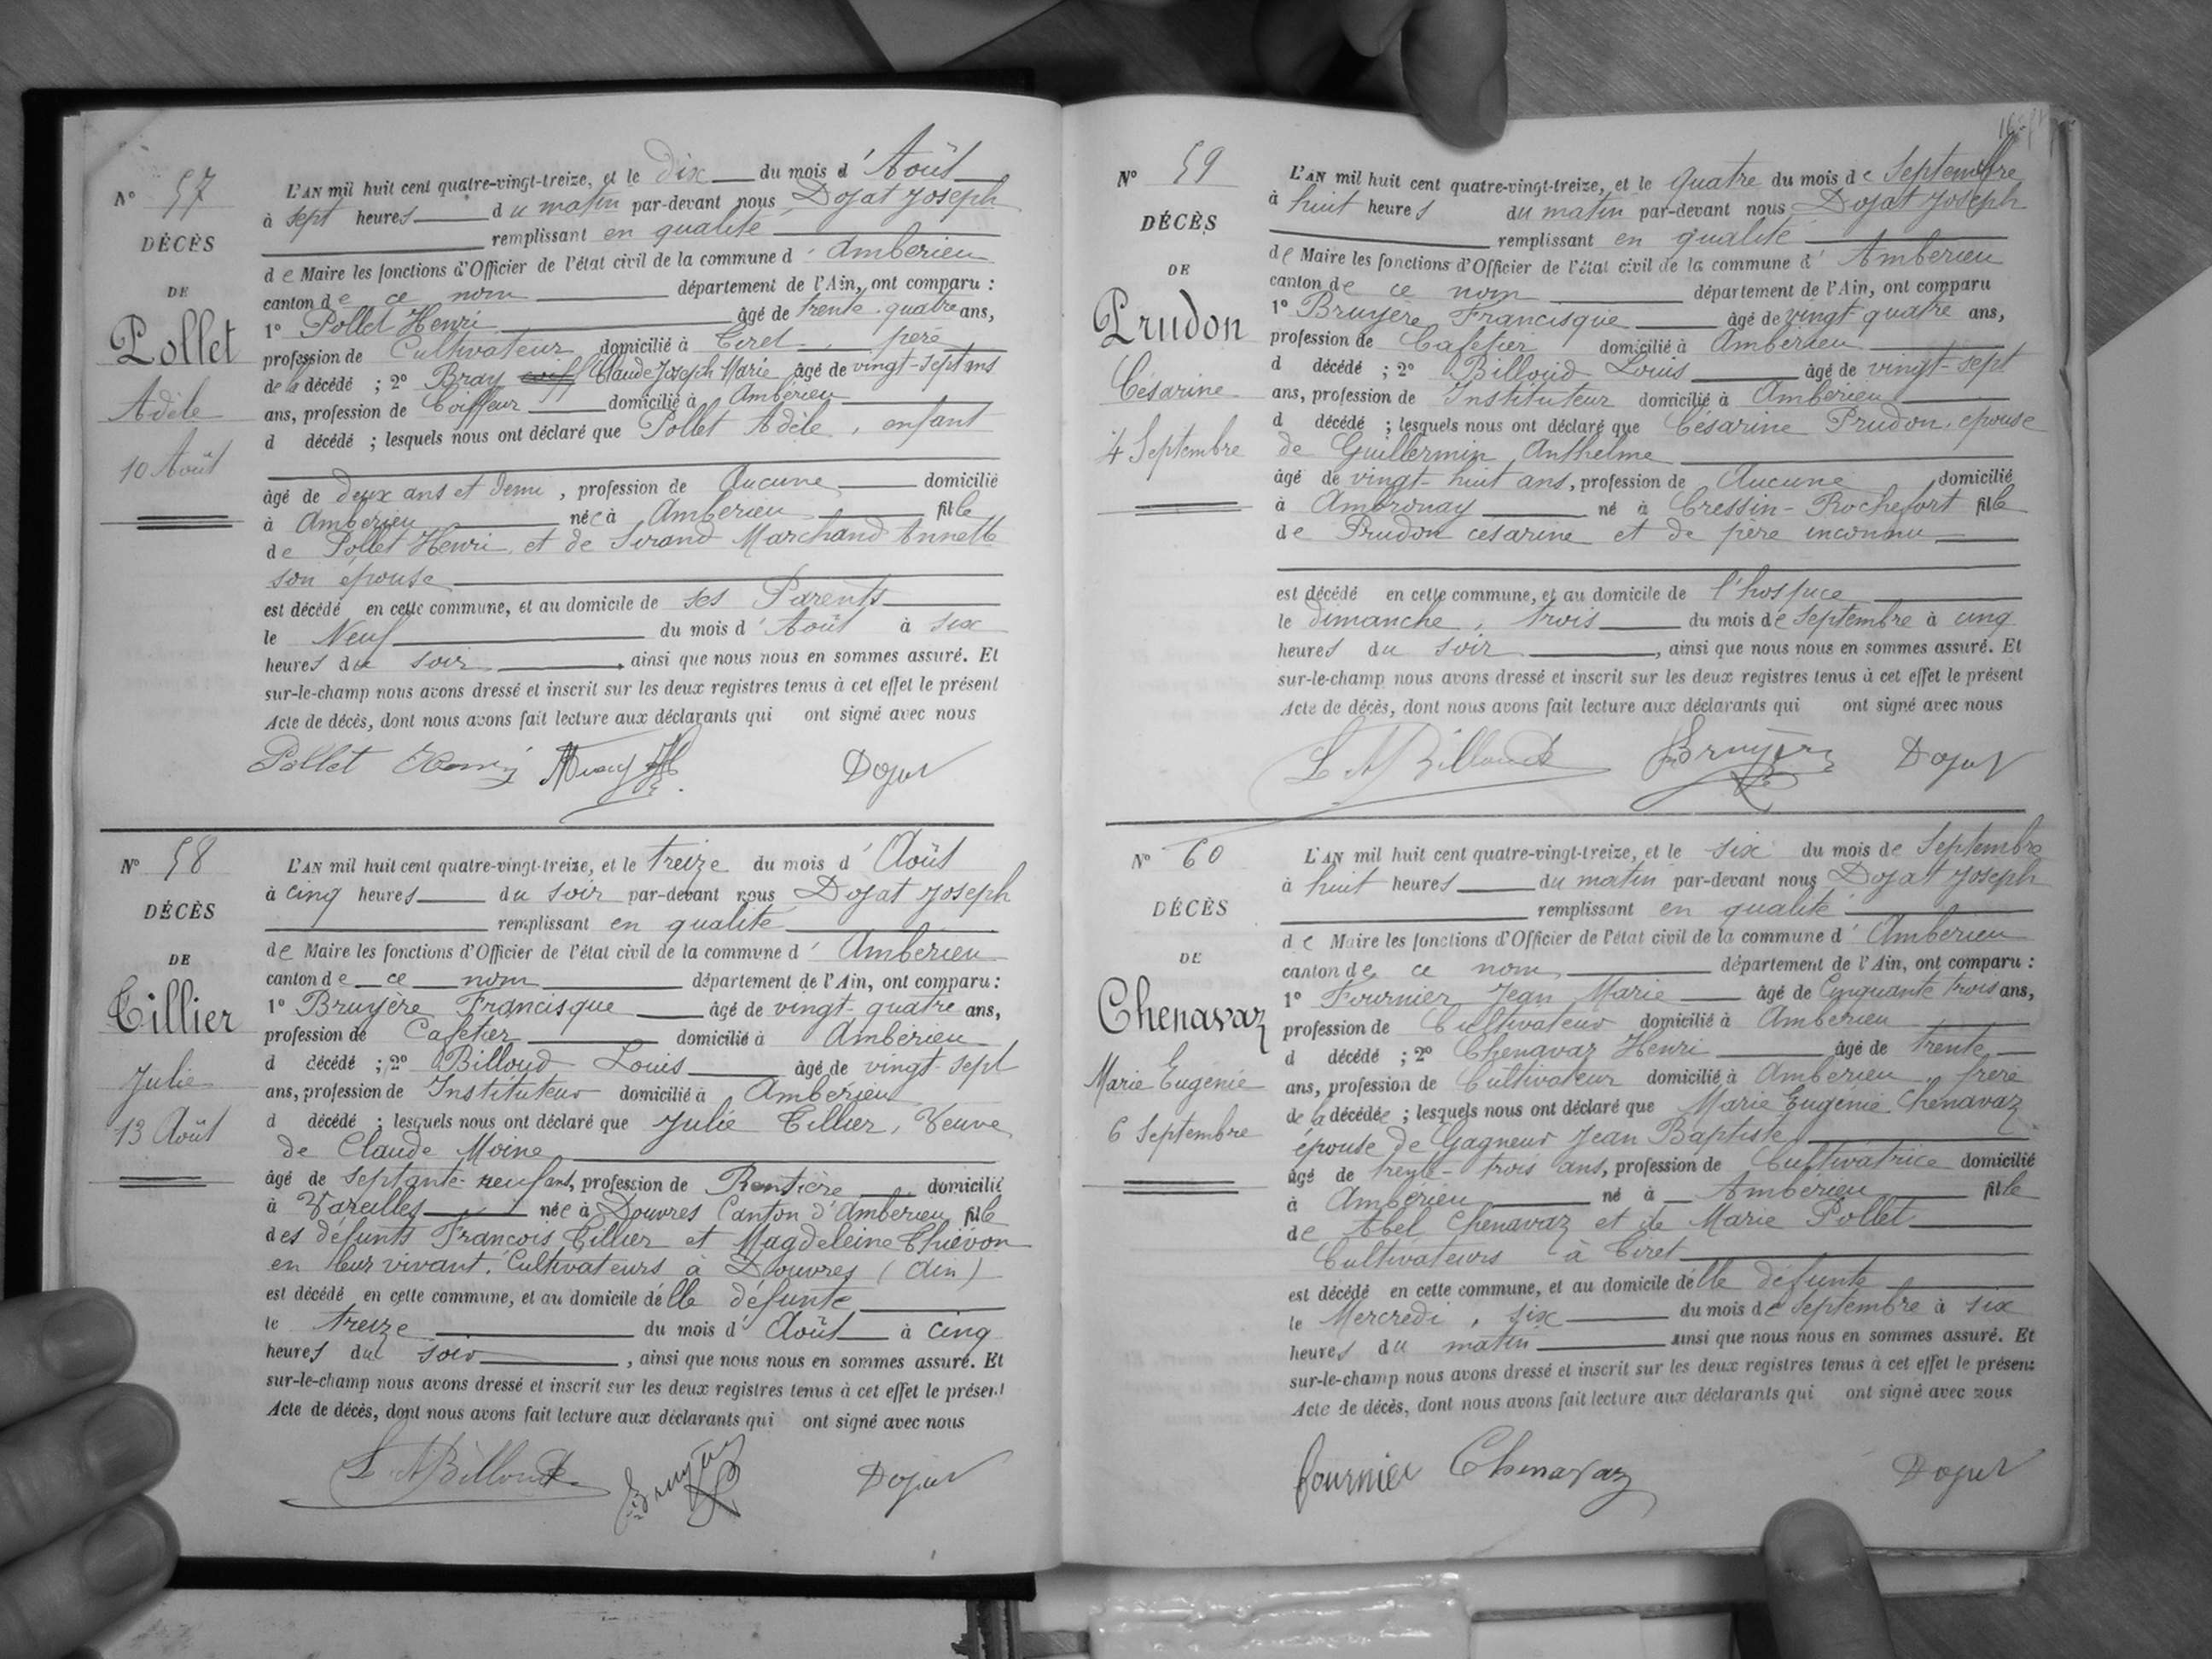 N° 57
DÉCÈS
DE
Pollet
Adèle
10 Août
L'AN mil huit cent quatre-vingt-treize, et le dix du mois d'Août
à sept heures du matin par-devant nous Dojat Joseph
remplissant en qualité
de Maire les fonctions d'Officier de l'état civil de la commune d'Amberieu
canton de ce nom département de l'Ain, ont comparu :
1° Pollet Henri âgé de trente-quatre ans,
profession de Cultivateur domicilié à Tiret, père
de la décédé ; 2° Bray Claude Joseph Marie âgé de vingt-sept ans
ans, profession de Coiffeur domicilié à Amberieu
d décédé ; lesquels nous ont déclaré que Pollet Adèle, enfant
âgé de deux ans et demi, profession de Aucune domicilié
à Amberieu née à Amberieu fille
de Pollet Henri et de Sirand Marchand Annette
son épouse
est décédé en cette commune, et au domicile de ses Parents
le Neuf du mois d'Août à six
heures du soir, ainsi que nous nous en sommes assuré. Et
sur-le-champ nous avons dressé et inscrit sur les deux registres tenus à cet effet le présent
Acte de décès, dont nous avons fait lecture aux déclarants qui ont signé avec nous
Pollet Henri Dojat
N° 58
DÉCÈS
DE
Tillier
Julie
13 Août
L'AN mil huit cent quatre-vingt-treize, et le treize du mois d'Août
à cinq heures du soir par-devant nous Dojat Joseph
remplissant en qualité
de Maire les fonctions d'Officier de l'état civil de la commune d'Amberieu
canton de ce nom département de l'Ain, ont comparu :
1° Bruyère Francisque âgé de vingt-quatre ans,
profession de Cafetier domicilié à Amberieu
d décédé ; 2° Billoud Louis âgé de vingt-sept
ans, profession de Instituteur domicilié à Amberieu
d décédé ; lesquels nous ont déclaré que Julie Tillier, Veuve
de Claude Moine
âgé de septante-neuf ans, profession de Rentière domicilié
à Vareilles née à Douvres Canton d'Amberieu fille
des défunts François Tillier et Magdeleine Thiévon
en leur vivant, Cultivateurs à Douvres (Ain)
est décédé en cette commune, et au domicile de lle défunte
le treize du mois d'Août à cinq
heures du soir, ainsi que nous nous en sommes assuré. Et
sur-le-champ nous avons dressé et inscrit sur les deux registres tenus à cet effet le présent
Acte de décès, dont nous avons fait lecture aux déclarants qui ont signé avec nous
L Billoud Bruyère Dojat
N° 59
DÉCÈS
DE
Prudon
Césarine
4 Septembre
L'AN mil huit cent quatre-vingt-treize, et le quatre du mois de Septembre
à huit heures du matin par-devant nous Dojat Joseph
remplissant en qualité
de Maire les fonctions d'Officier de l'état civil de la commune d'Amberieu
canton de ce nom département de l'Ain, ont comparu
1° Bruyère Francisque âgé de vingt quatre ans,
profession de Cafetier domicilié à Amberieu
d décédé ; 2° Billoud Louis âgé de vingt-sept
ans, profession de Instituteur domicilié à Amberieu
d décédé ; lesquels nous ont déclaré que Césarine Prudon, epouse
de Guillermin Anthelme
âgé de vingt-huit ans, profession de Aucune domicilié
à Ambronay né à Cressin-Rochefort fille
de Prudon césarine et de père inconnu
est décédé en cette commune, et au domicile de l'hospice
le dimanche, trois du mois de Septembre à cinq
heures du soir, ainsi que nous nous en sommes assuré. Et
sur-le-champ nous avons dressé et inscrit sur les deux registres tenus à cet effet le présent
Acte de décès, dont nous avons fait lecture aux déclarants qui ont signé avec nous
L Billoud Bruyère Dojat
N° 60
DÉCÈS
DE
Chenavaz
Marie Eugenie
6 Septembre
L'AN mil huit cent quatre-vingt-treize, et le six du mois de Septembre
à huit heures du matin par-devant nous Dojat Joseph
remplissant en qualité
de Maire les fonctions d'Officier de l'état civil de la commune d'Amberieu
canton de ce nom département de l'Ain, ont comparu :
1° Fournier Jean Marie âgé de Cinquante trois ans,
profession de Cultivateur domicilié à Amberieu
d décédé ; 2° Chenavaz Henri âgé de trente
ans, profession de Cultivateur domicilié à Amberieu, frère
de la décédée ; lesquels nous ont déclaré que Marie Eugenie Chenavaz
épouse de Gagneur Jean Baptiste
âgé de trente-trois ans, profession de Cultivatrice domicilié
à Amberieu né à Amberieu fille
de Abel Chenavaz et de Marie Pollet
Cultivateurs à Tiret
est décédé en cette commune, et au domicile de lle défunte
le Mercredi, six du mois de Septembre à six
heures du matin ainsi que nous nous en sommes assuré. Et
sur-le-champ nous avons dressé et inscrit sur les deux registres tenus à cet effet le présent
Acte de décès, dont nous avons fait lecture aux déclarants qui ont signé avec nous
fournier Chenavaz Dojat